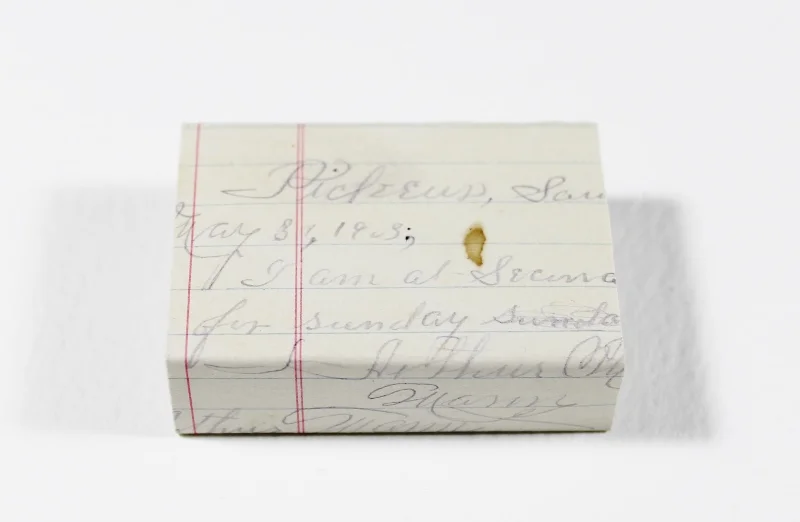 Pickens, Sou
May 31, 1903;
I am at Secona
for sunday sunda
Arthur
Mann
thur Mann